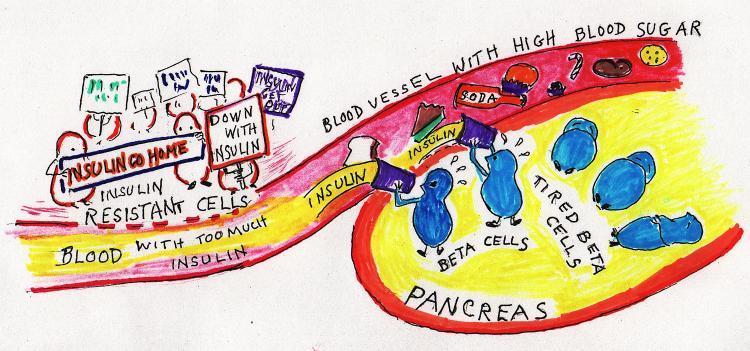 BLOOD VESSEL WITH HIGH BLOOD SUGAR
SODA
INSULIN
GET
OUT
DOWN
WITH
INSULIN
INSULIN GO HOME
INSULIN
RESISTANT CELLS
INSULIN
INSULIN
BLOOD WITH TOO MUCH
INSULIN
BETA CELLS
TIRED BETA
CELLS
PANCREAS